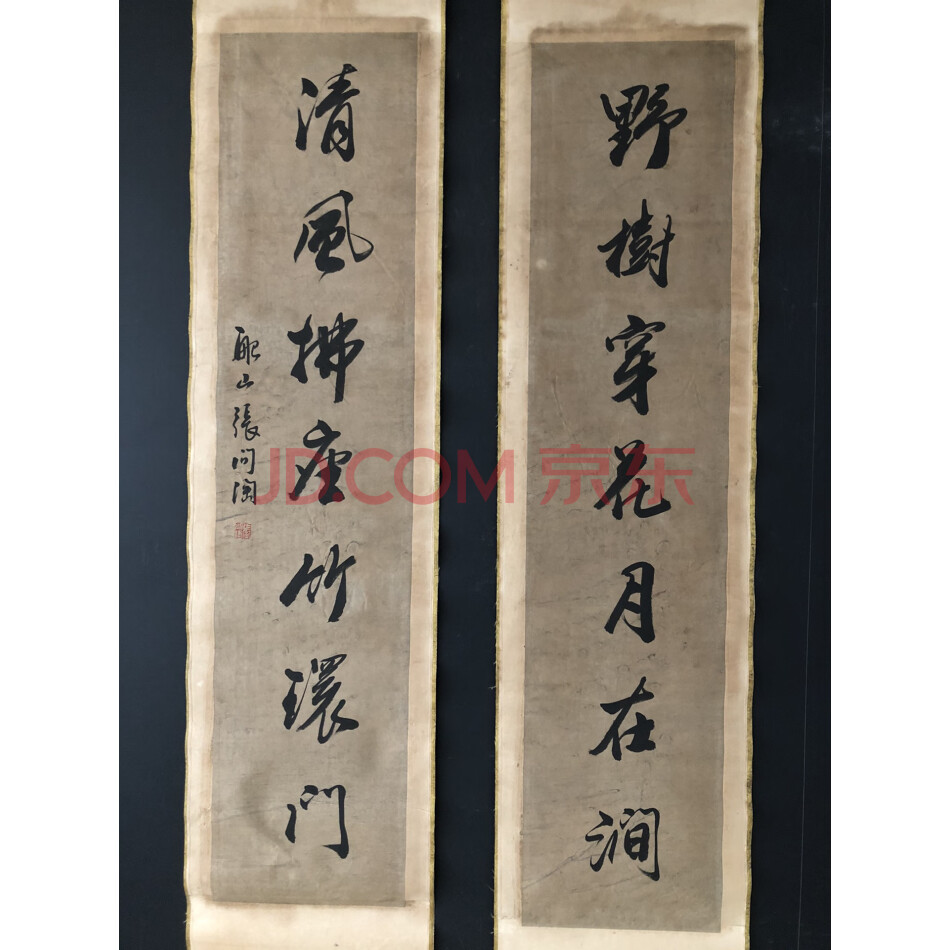 野樹穿花月在澗
清風拂座竹環門
船山張問陶
JD.COM 京东